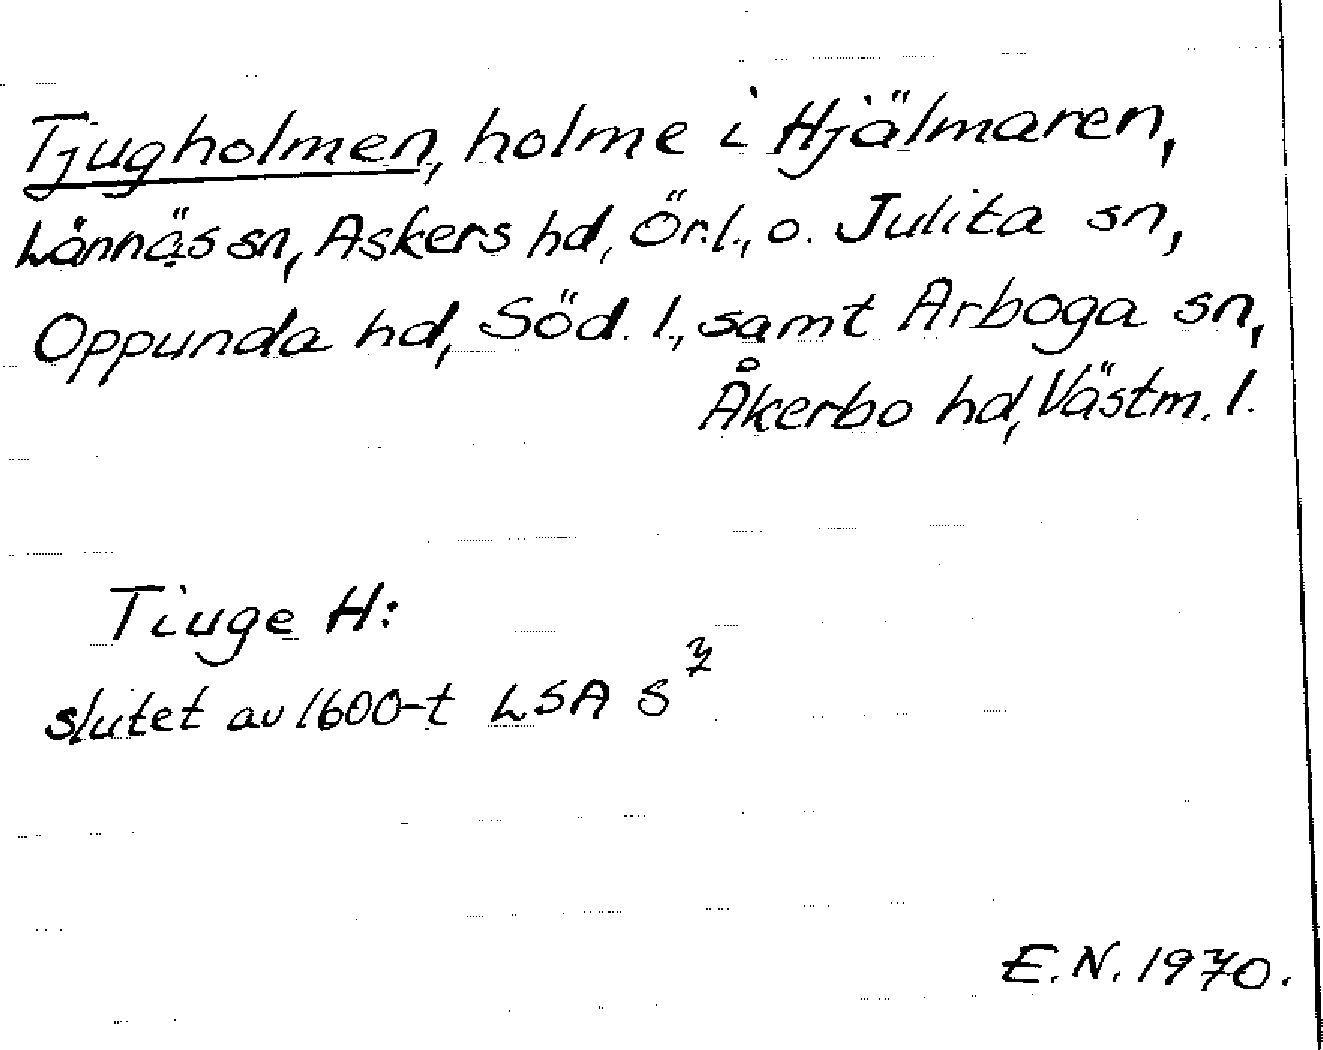 Tjugholmen, holme i Hjälmaren,
Lännäs sn, Askers hd, Ör.l., o. Julita sn,
Oppunda hd, Söd. l., samt Arboga sn,
Åkerbo hd, Västm. l.
Tiuge H:
slutet av 1600-t LSA S 7
E.N. 1970.